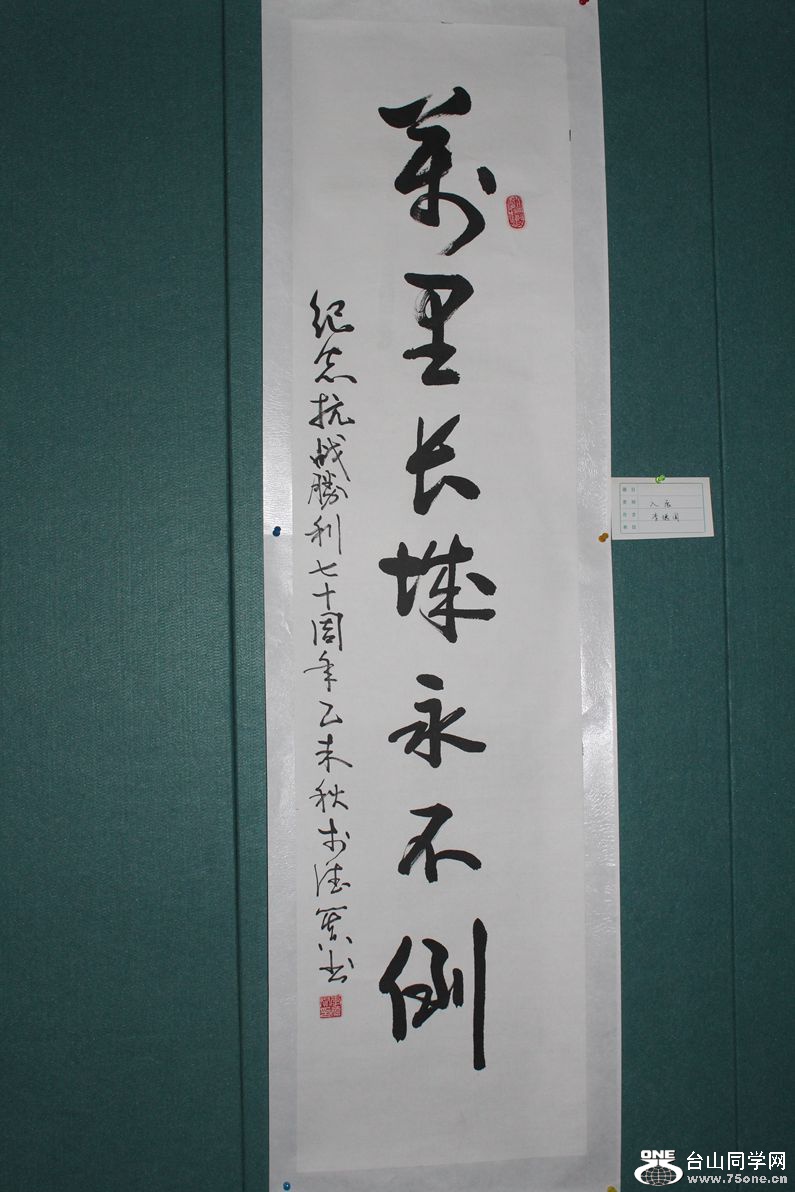 萬里长城永不倒
纪念抗战勝利七十周年乙未秋李德
书
入展
李德
ONE
台山同学网
www.75one.cn